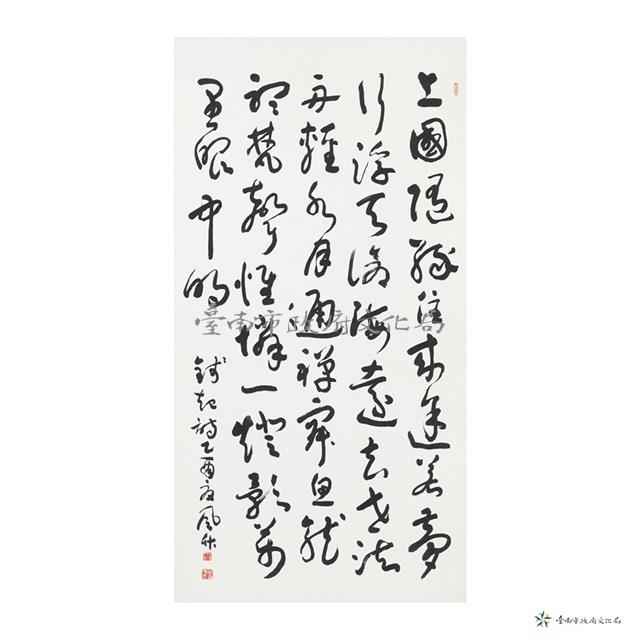 上國隨緣住來途若夢
行浮天滄海遠去世法
舟輕水月通禪寂魚龍
聽梵聲惟憐一燈影萬
里眼中明
錢起詩乙酉夏風
臺南市政府文化局
臺南市政府文化局